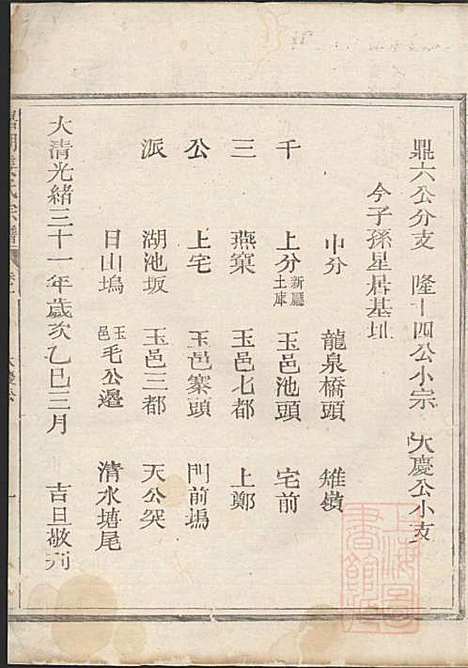 鼎六公分支　隆十四公小宗　大慶公小支
今子孫星居基址
中分　龍泉橋頭　雉嶺
千　上分新廳土庫　玉邑池頭　宅前
三　燕窠　玉邑七都　上鄭
公　上宅　玉邑寨頭　門前塢
派　湖池坂　玉邑三都　天公突
日山塢　玉邑毛公邊　清水塘尾
大清光緒三十一年歲次乙巳三月　吉旦敬刋
氏宗譜
大慶公
一
上海圖書館藏